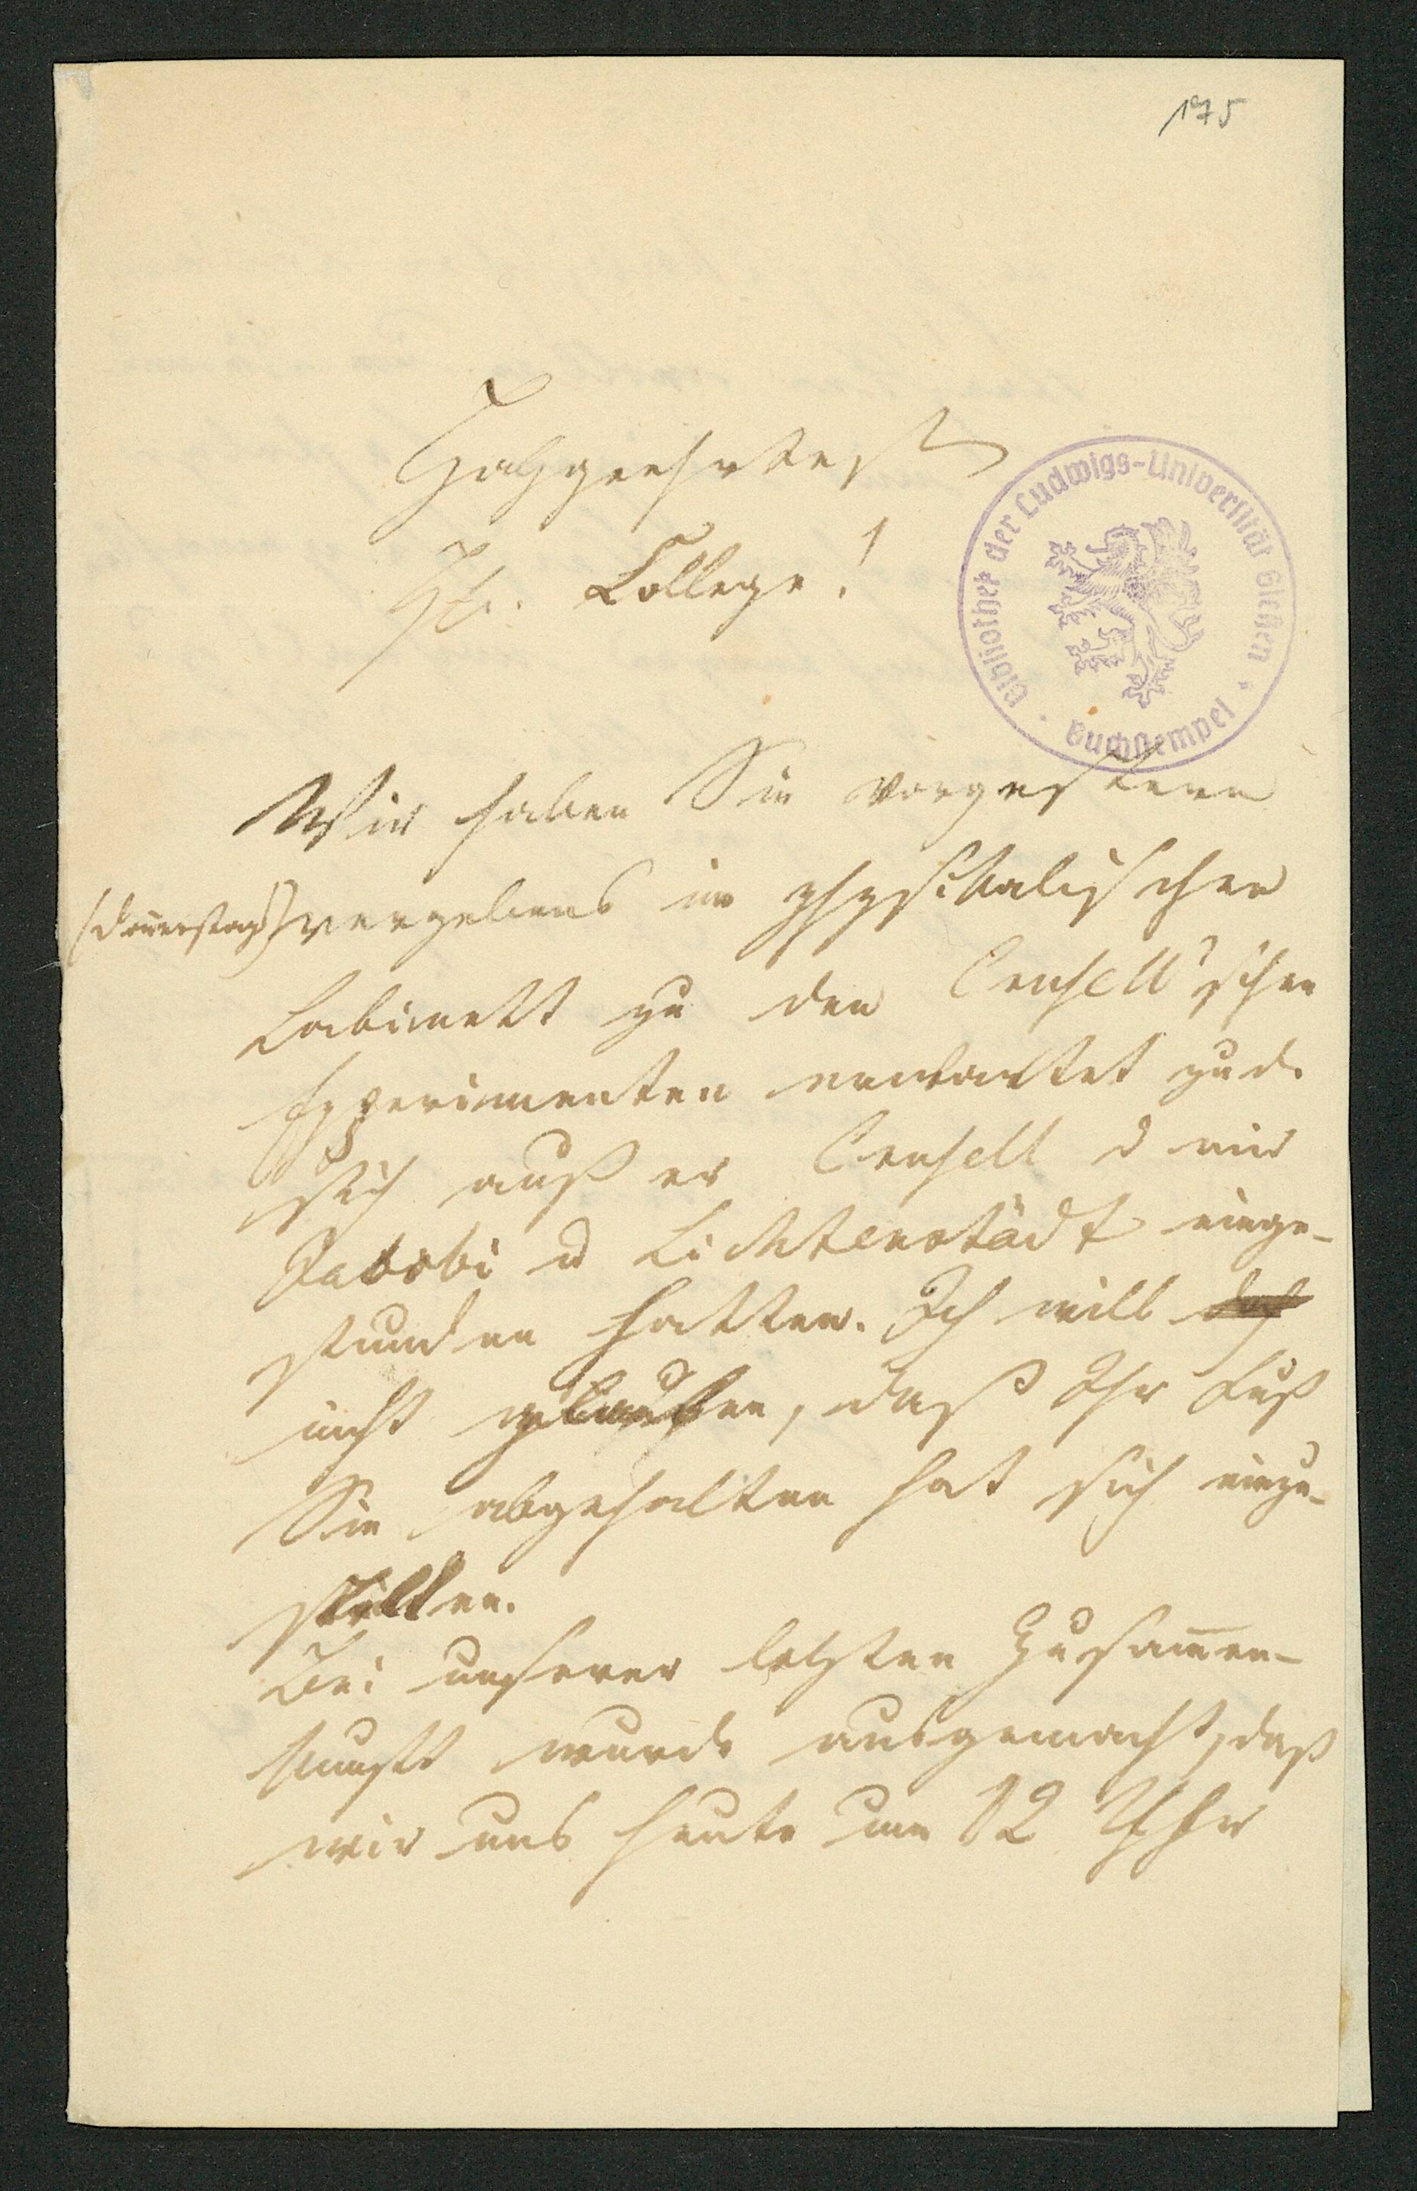 175
Hochgeehrtest
Hr. College!
Bibliothek der Ludwigs-Universität Gießen
Buchstempel
Wir haben Sie vorgestern
(Donnerstag) vergebens im physikalischen
Cabinett zu den 'schen
Experimenten erwartet zu d.
sich außer u mir
Jacobi u Lichtenstädt einge-
funden hatten. Ich will doch
nicht glauben, daß Ihr Fuß
Sie abgehalten hat sich einzu-
stellen.
Bei unserer letzten Zusam̅en-
kunft wurde ausgemacht, daß
wir uns heute um 12 Uhr